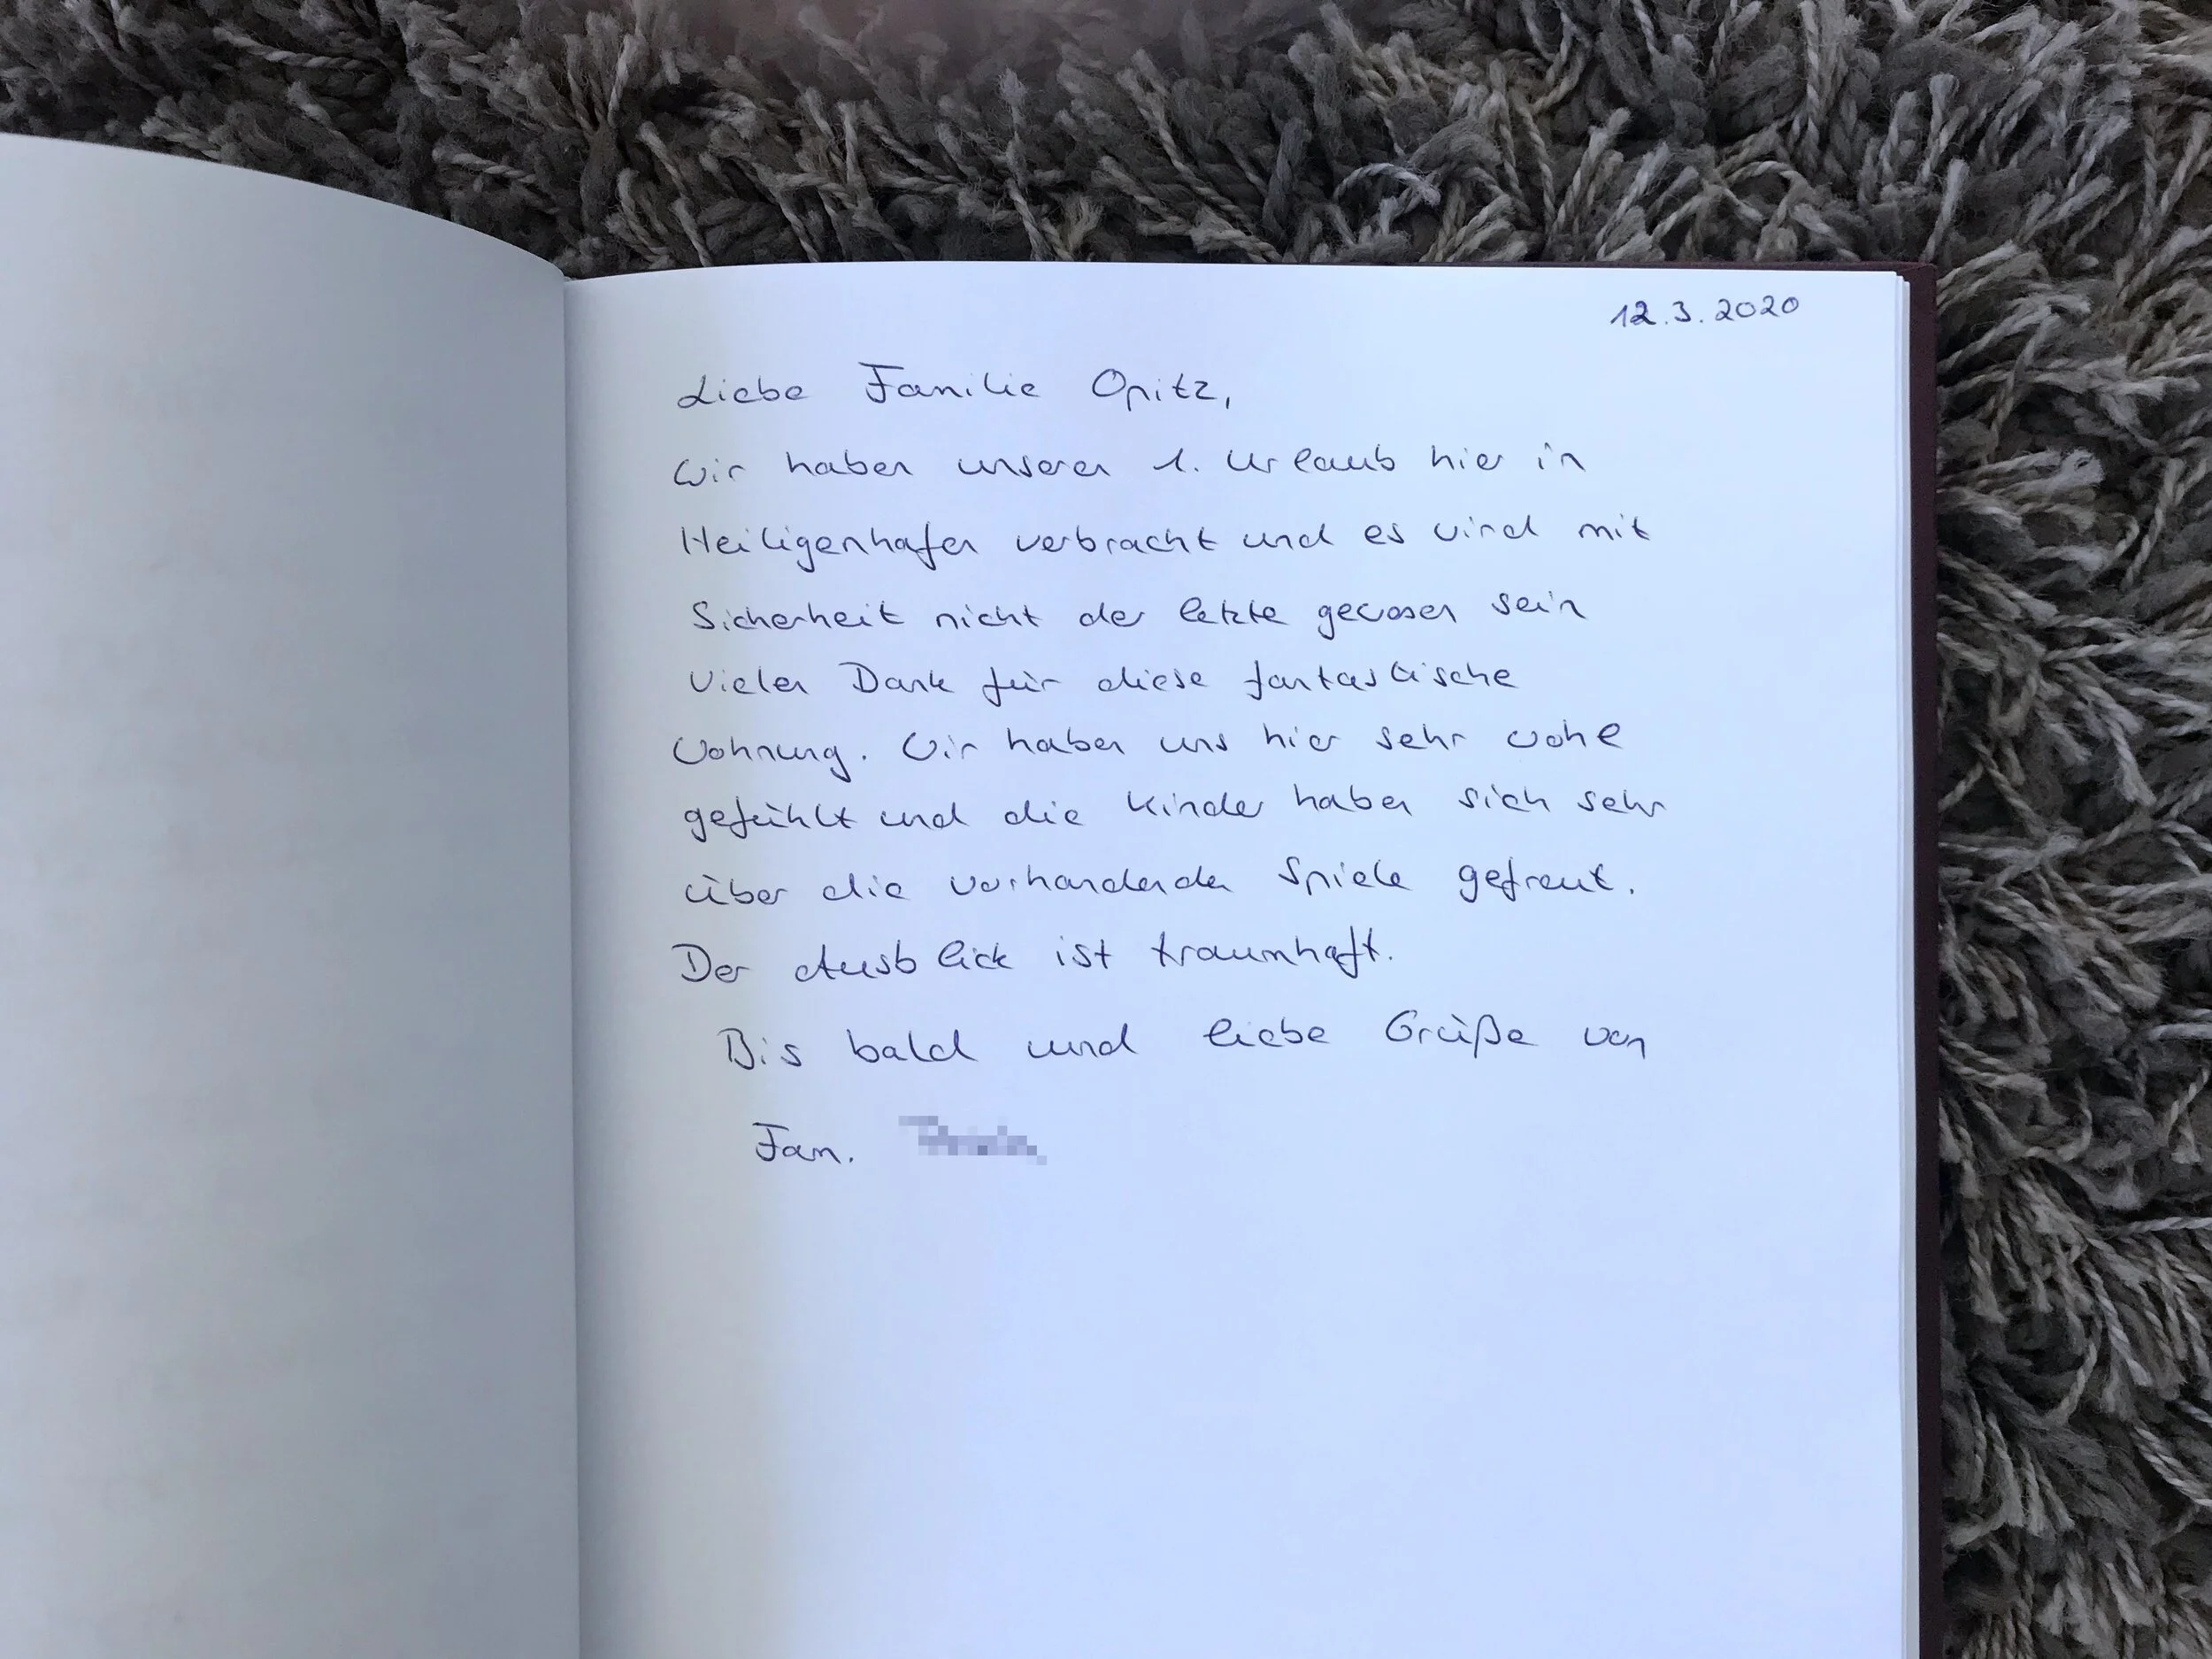 12.3.2020
Liebe Familie Opitz,
wir haben unseren 1. Urlaub hier in
Heiligenhafen verbracht und es wird mit
Sicherheit nicht der letzte gewesen sein
Vielen Dank für diese fantastische
Wohnung. Wir haben uns hier sehr wohl
gefühlt und die Kinder haben sich sehr
über die vorhandenden Spiele gefreut.
Der Ausblick ist traumhaft.
Bis bald und liebe Grüße von
Fam.